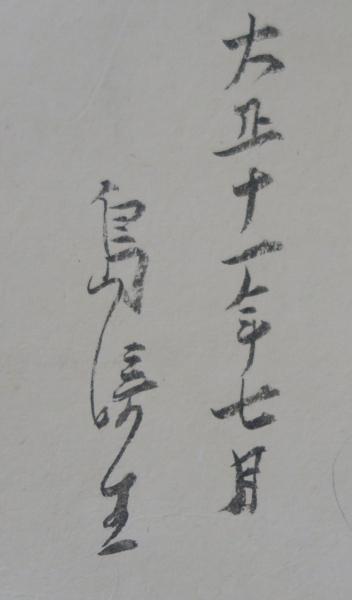 大正十一年七月
島崎生